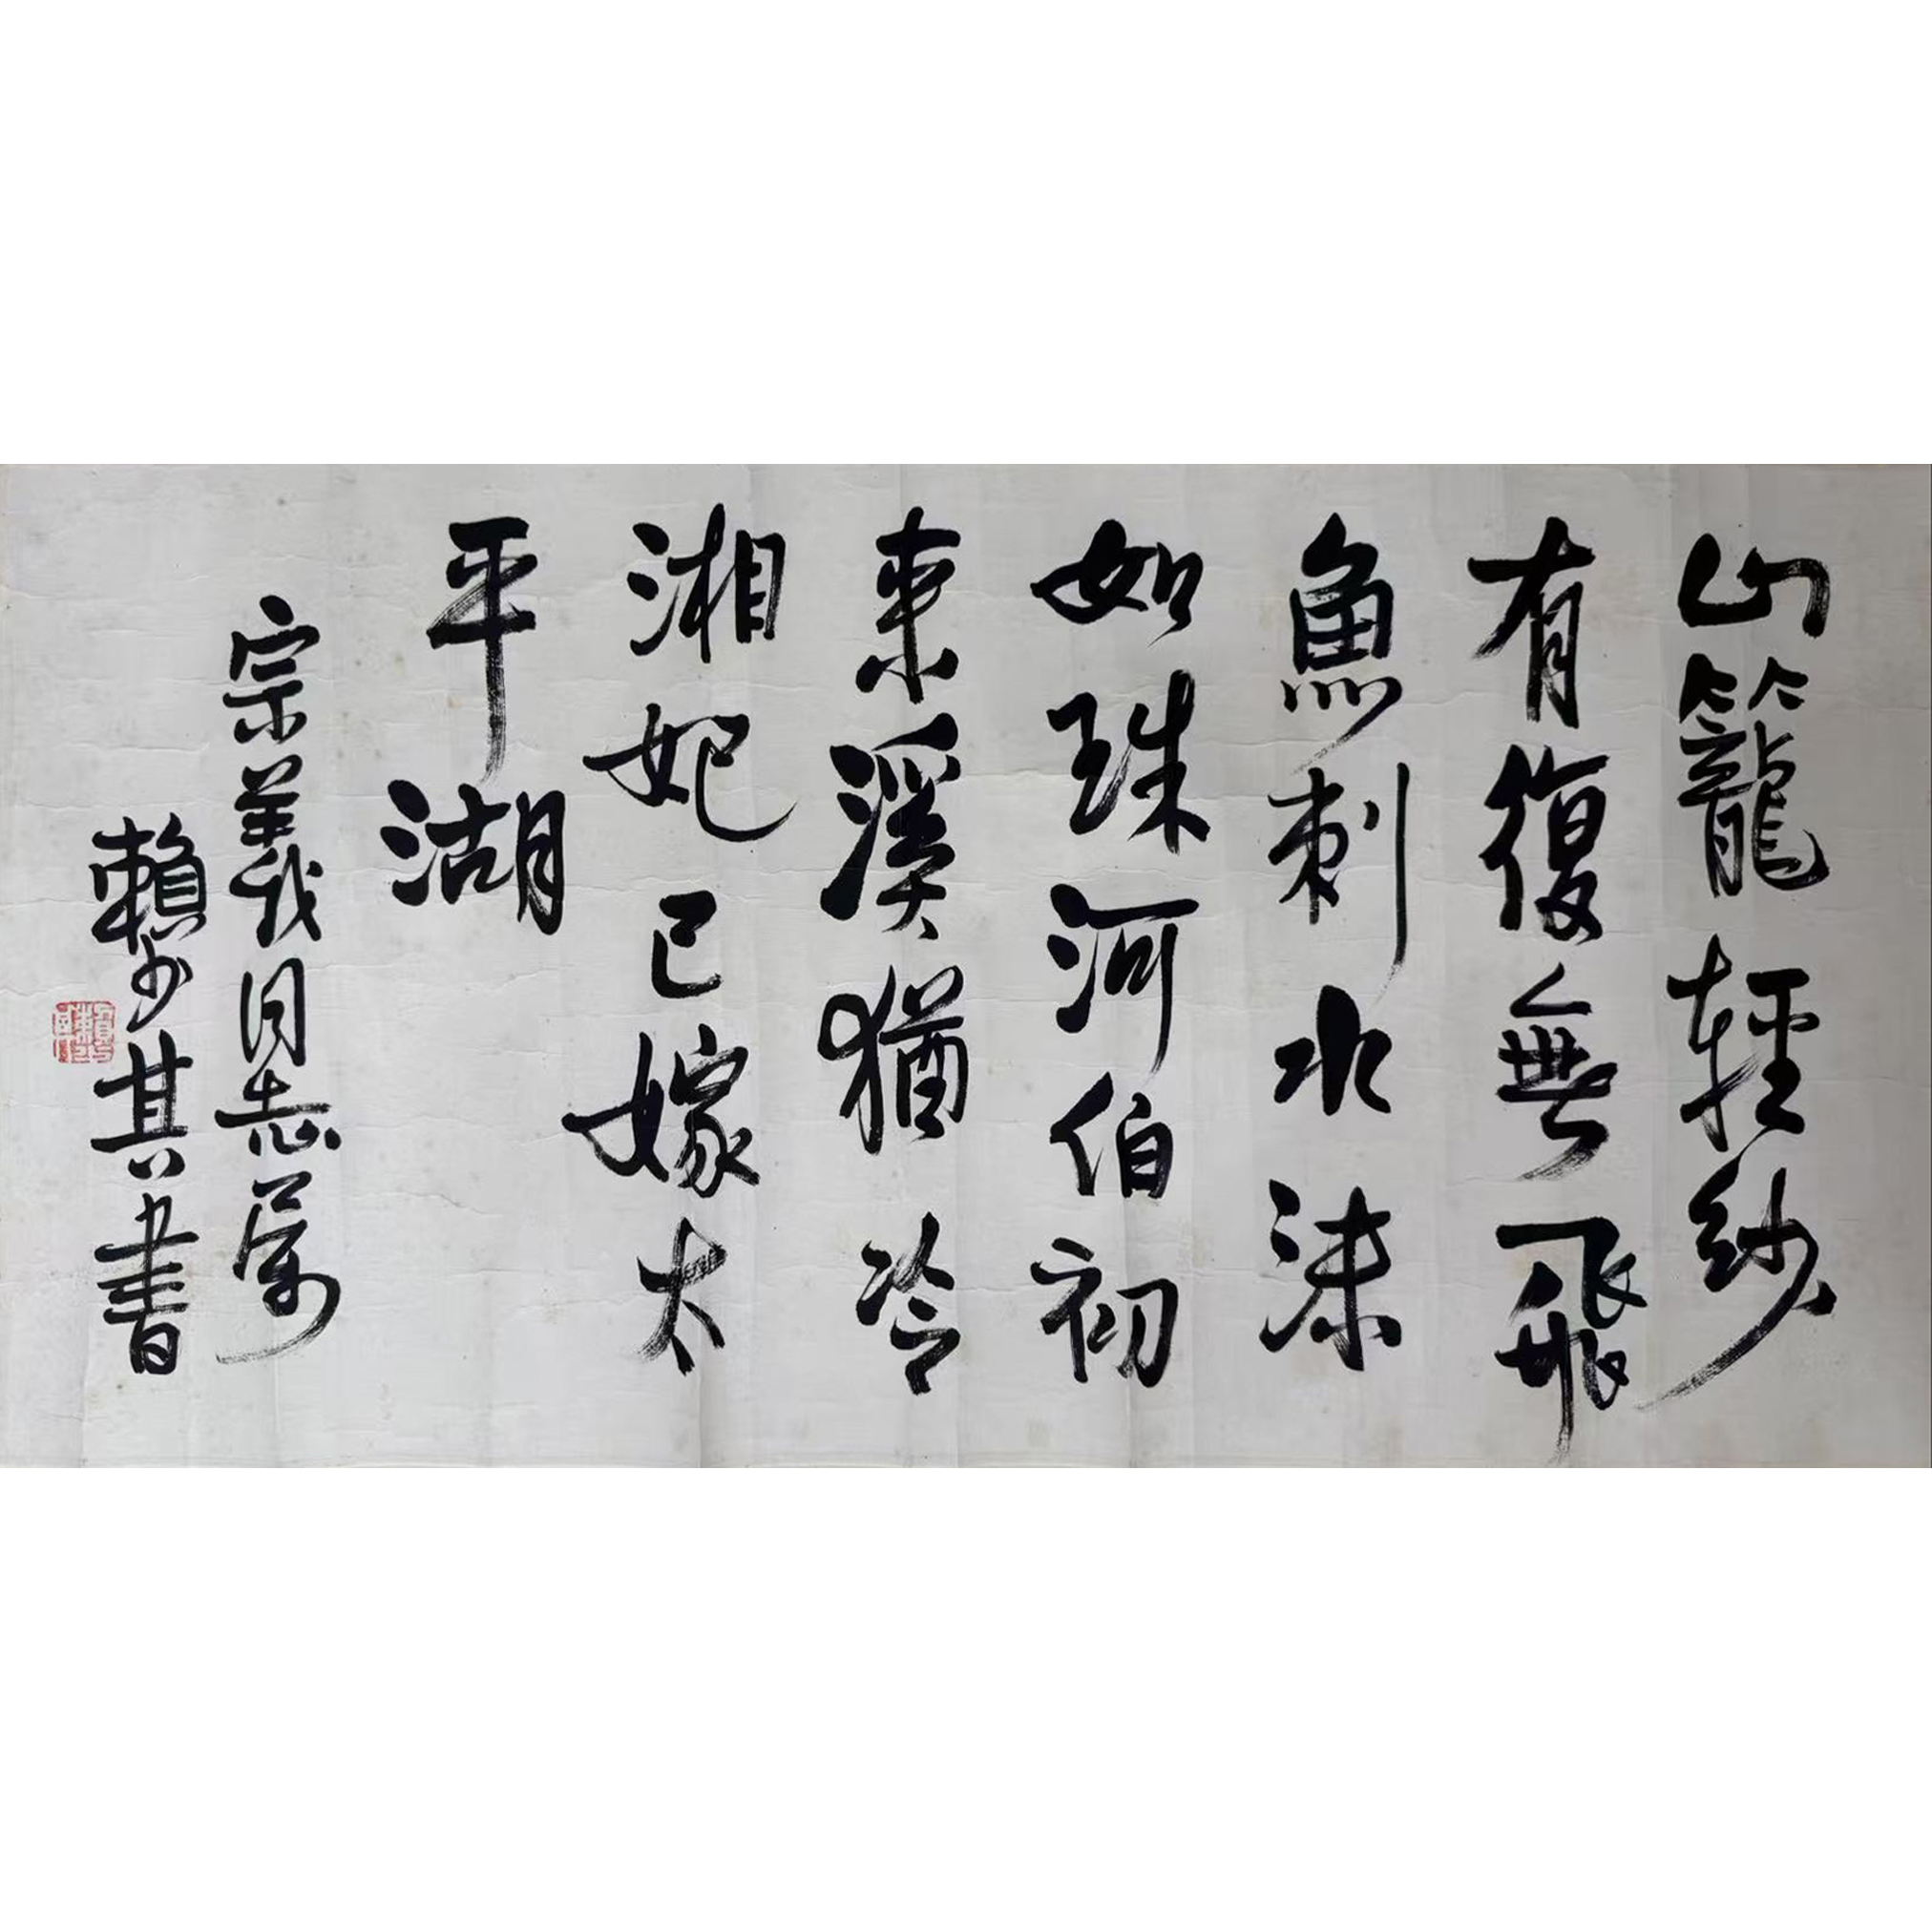 山籠輕紗
有復無飛
魚刺水沫
如珠河伯初
來溪猶冷
湘妃已嫁太
平湖
宗義同志屬
賴少其書